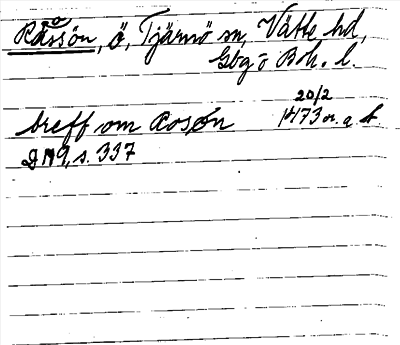 Råssön, ö, Tjärnö sn, Vätte hd,
Gbg o Boh. l.
breff om Rosøn 20/2 1473 or. a. b.
DN 9, s. 337